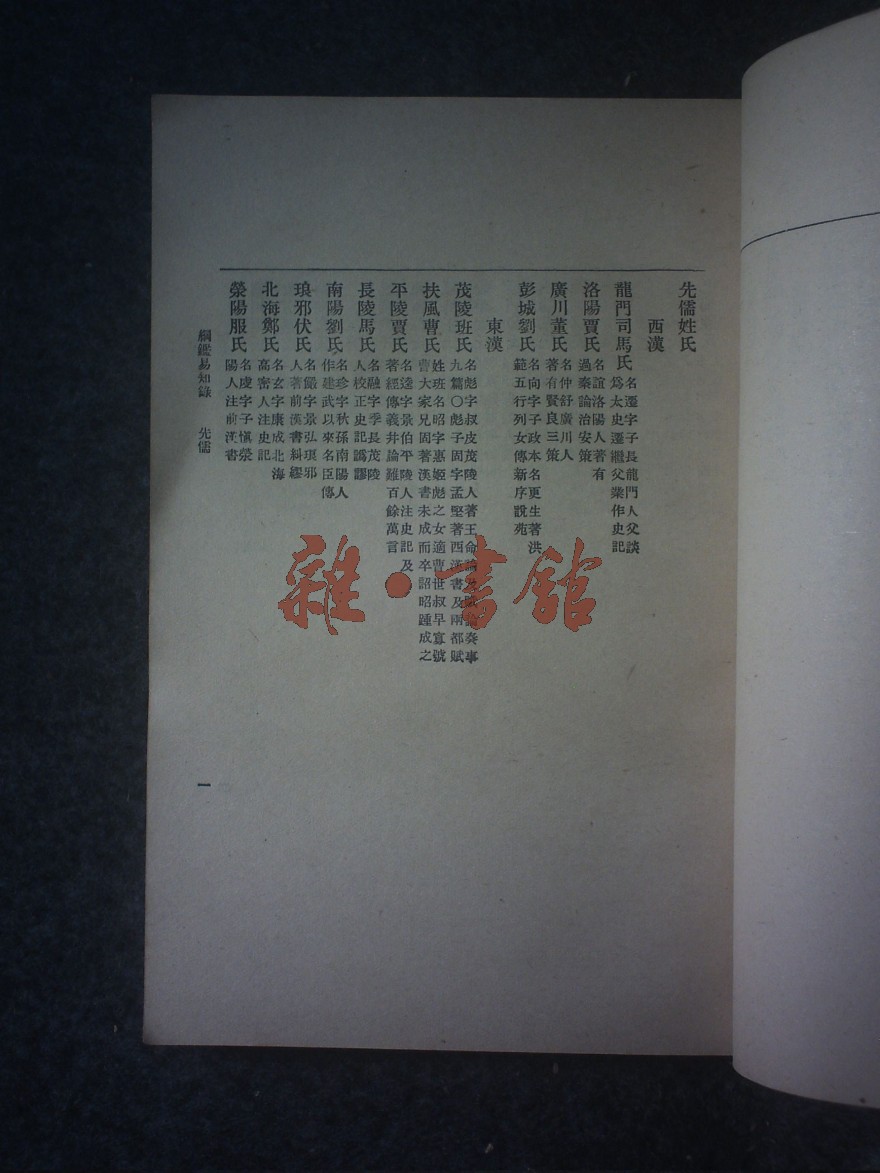 先儒姓氏
西漢
龍門司馬氏
名遷字子長龍門人父談
爲太史遷繼父業作史記
洛陽賈氏
名誼洛陽人著有
過秦論治安策
廣川董氏
名仲舒廣川人
著有賢良三策
彭城劉氏
名向字子政本名更生著洪
範五行列女傳新序說苑
東漢
茂陵班氏
名彪字叔皮茂陵人著王命論及賦論奏事
九篇〇彪子固字孟堅著西漢書及兩都賦
扶風曹氏
姓班名昭字惠姬彪之女適曹世叔早寡號
曹大家兄固著漢書未成而卒詔昭踵成之
平陵賈氏
名逵字景伯平陵人注史記及
著經傳義井論難百餘萬言
長陵馬氏
名融字季長茂陵
人校正史記譌謬
南陽劉氏
名珍字秋孫南陽人
作建武以來名臣傳
琅邪伏氏
名儼字景弘琅邪
人著前漢書糾繆
北海鄭氏
名玄字康成北海
高密人注史記
滎陽服氏
名虔字子愼滎
陽人注前漢書
綱鑑易知錄 先儒
一
雜·書館